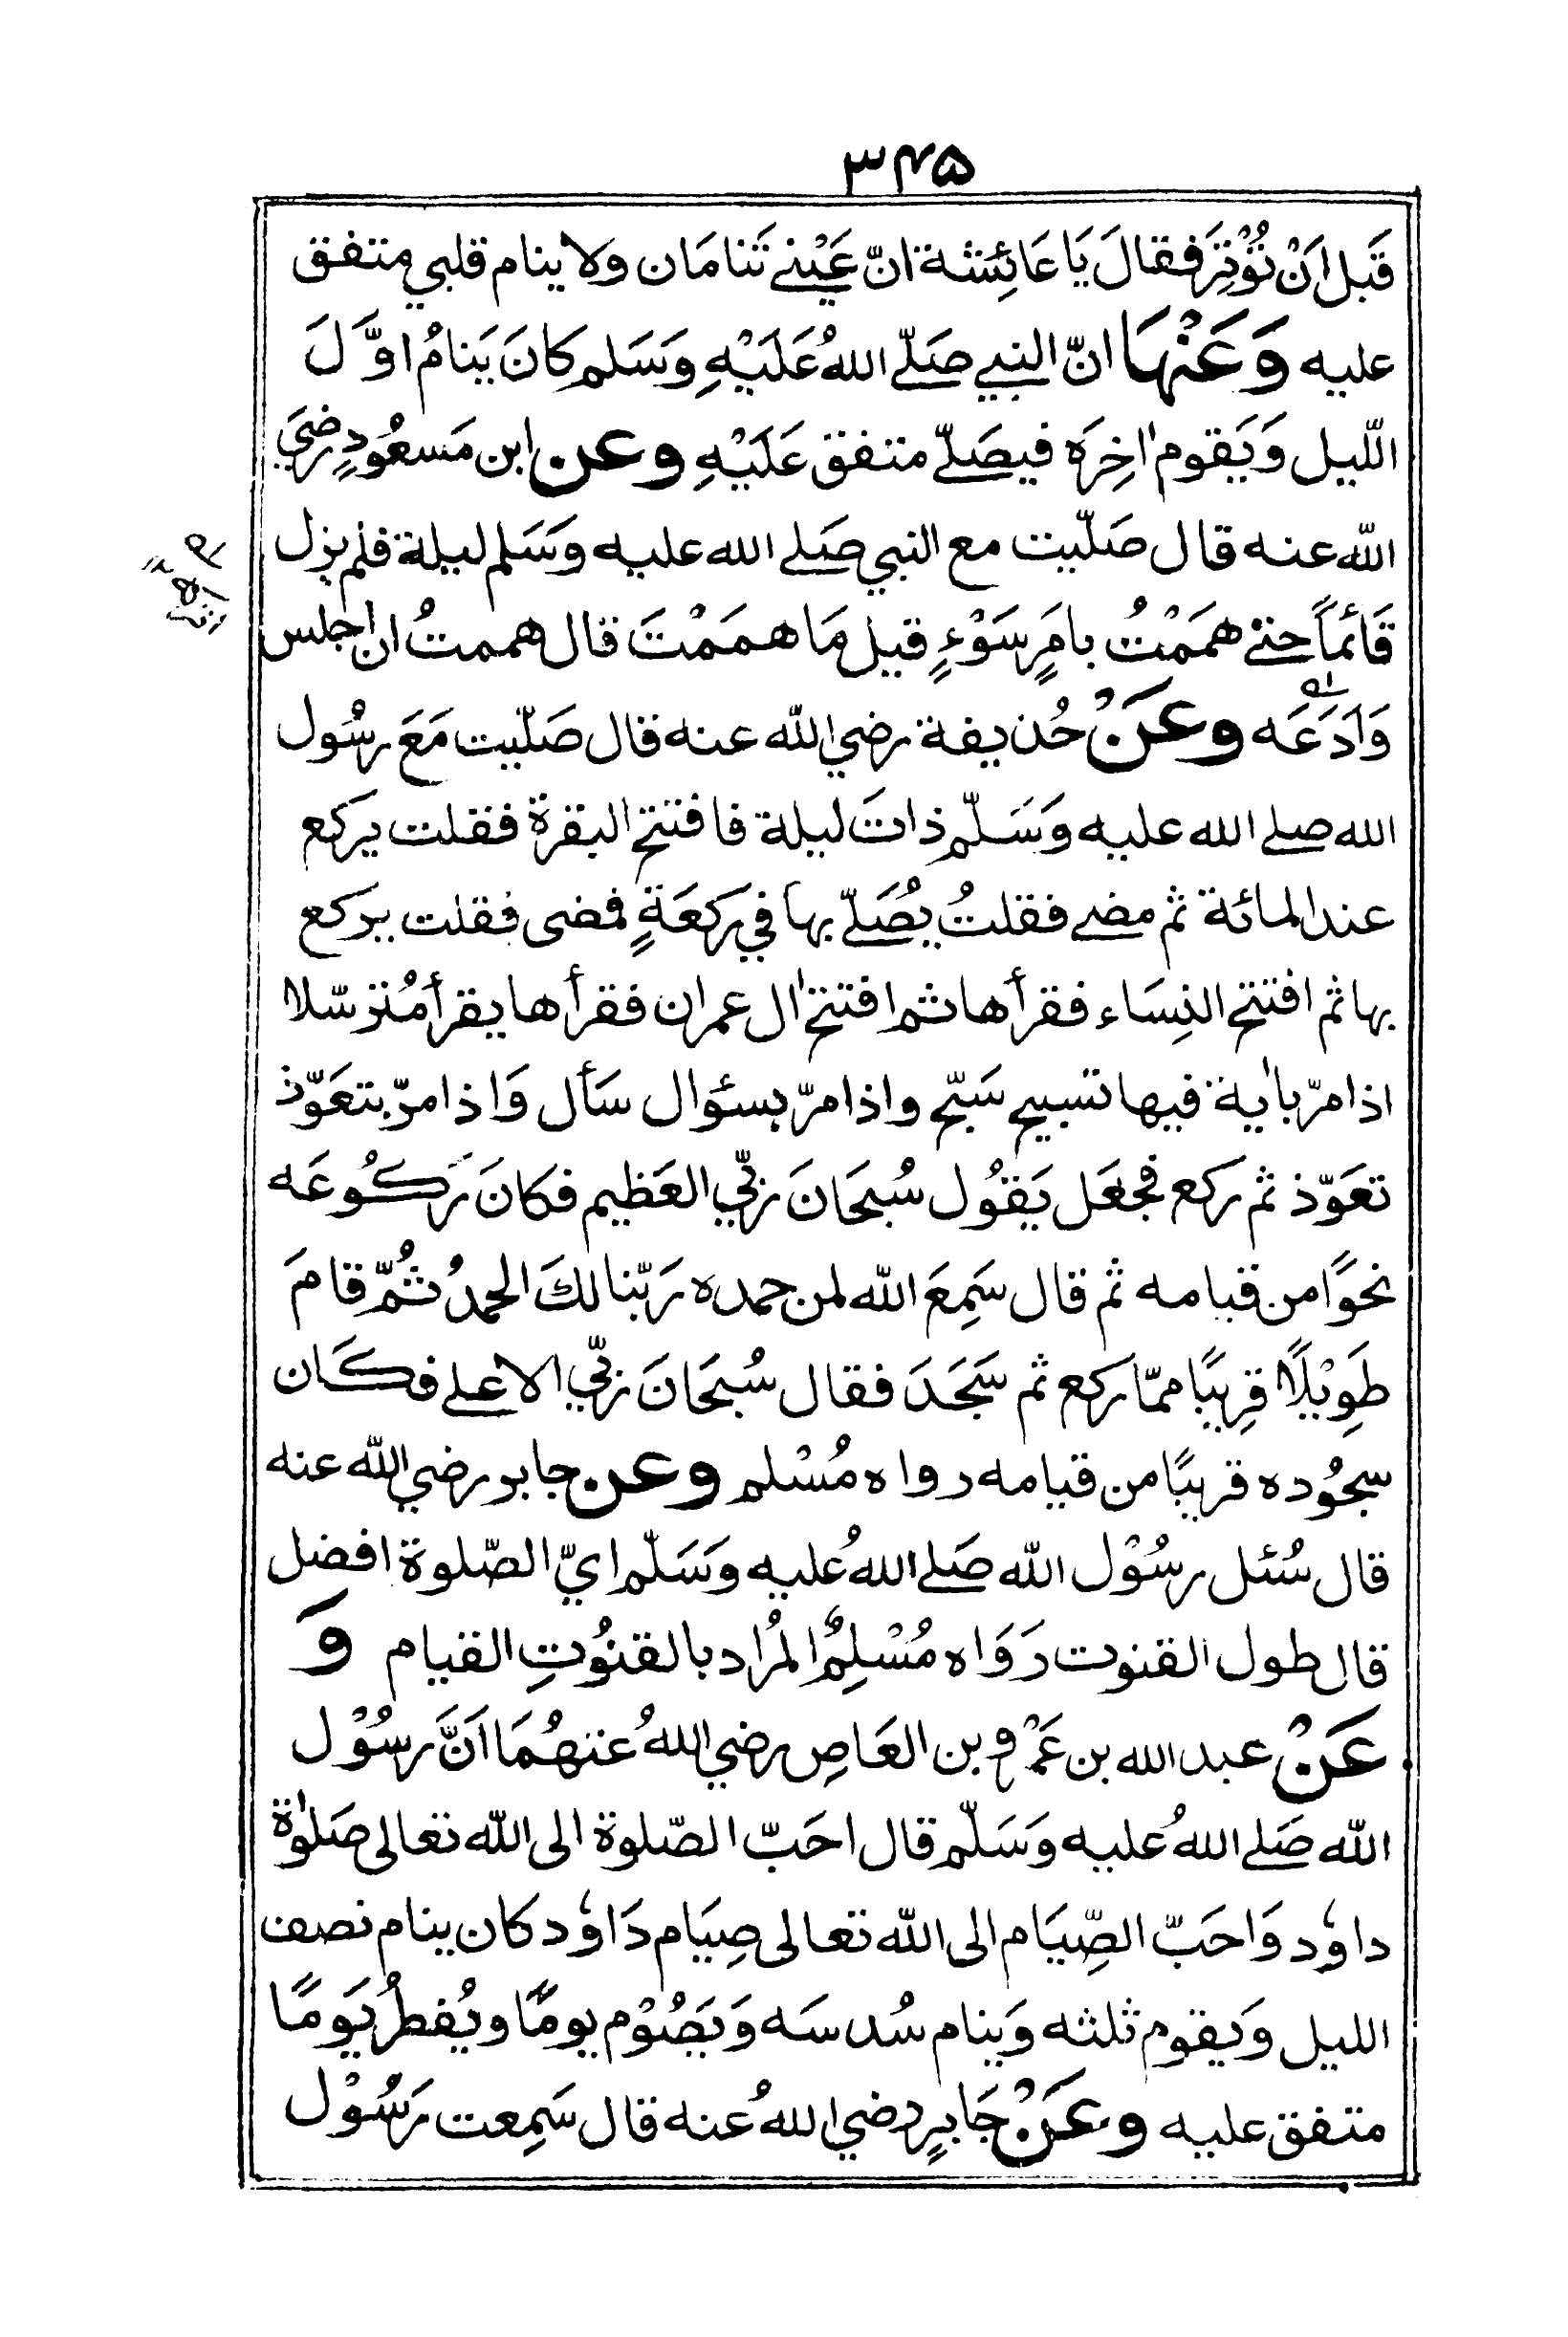 ۳۴۵
قَبل اَنْ تُوْتِرَ فقالَ يَا عَائِشة انّ عَيْنے تَنامَان ولا ينام قلبي متفق
عليه وَعَنْهَا انّ النبي صَلّے اللهُ عَلَيْهِ وَسَلم كانَ يَنامُ اوَّلَ
اللّيل وَيَقوم اٰخِرَه فيصَلّے متفق عَلَيْهِ وعن ابن مَسعُودٍ رضَي
اللّٰه عنه قال صَلّيت مع النبي صَلے الله عليه وَسَلم ليلة فلم يزل
قَائماً حتے همَمْتُ بامَرٍ سَوْءٍ قيل مَا هممْتَ قال هممتُ ان اجلس
وَاَدَعَه وعَنْ حُذيفة رضي اللّٰه عنه قال صَلّيت مَعَ رسُول
الله صلے الله عليه وَسَلّم ذاتَ ليلة فافتتح البقرة فقلت يركع
عند المائة ثم مضے فقلتُ يُصَلّے بها في ركعَةٍ فمضى فقلت يركع
بها ثم افتتح النِسَاء فقرأها ثم افتتح اٰل عمران فقرأها يقرأ مُترسّلا
اذا مرّ باٰية فيها تسبيح سَبّح واذا مرّ بسئوال سَأل وَاذا مرّ بتعَوّذ
تعَوّذ ثم ركع فجعَل يَقُول سُبحَانَ ربّي العَظيم فكانَ رَكُوعَه
نحوًا من قيامه ثم قال سَمِعَ اللّٰه لمن حمده رَبّنا لكَ الحمدُ ثُمّ قامَ
طَوِيْلًا قرِيبًا ممّا ركع ثم سَجَدَ فقال سُبحَانَ ربّي الاعلے فكَان
سجُوده قريبًا من قيامه رواه مُسْلم وعن جابر رضي اللّٰه عنه
قال سُئل رسُوْل اللّٰه صَلے اللهُ عليه وَسَلّم ايّ الصّلوة افضل
قال طول القنوت رَوَاه مُسْلِمٌ المُراد بالقنُوتِ القيام وَ
عَنْ عبد الله بن عَمْرو بن العَاصِ رضي اللهُ عنهُمَا اَنَّ رسُوْل
اللّٰه صَلے اللهُ عليه وَسَلّم قال احَبّ الصّلوة الى اللّٰه تعالى صَلوٰة
داوٗد وَاحَبّ الصِّيَام الى اللّٰه تعالى صِيَام دَاوٗد كان ينام نصف
الليل وَيقوم ثلثه وَينام سُدسَه وَيَصُوْم يومًا ويُفطرُ يَومًا
متفق عليه وعَنْ جَابرٍ رضي اللهُ عنه قال سَمِعت رَسُوْل